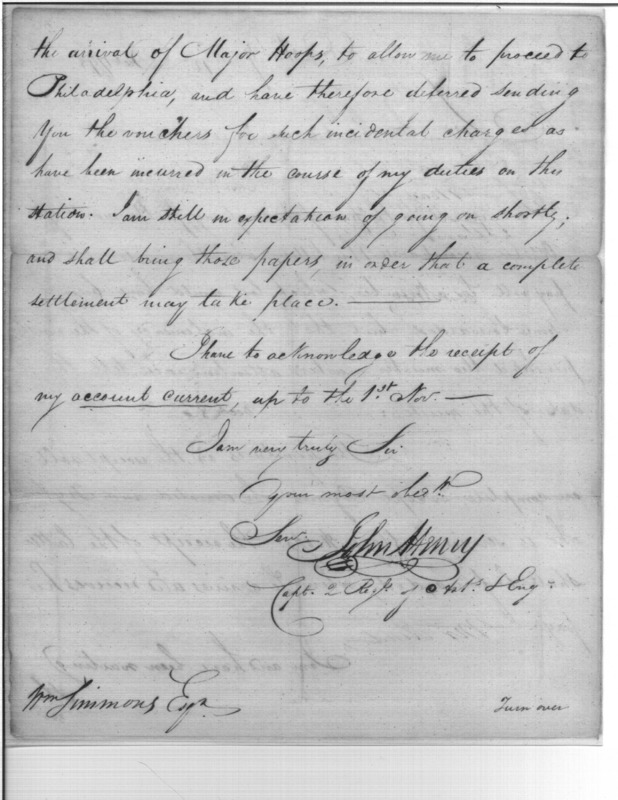 the arrival of Major Hoops, to allow me to proceed to
Philadelphia, and have therefore deferred sending
You the vouchers for such incidental charges as
have been incurred in the course of my duties on this
station. I am still in expectation of going on shortly;
and shall bring those papers, in order that a complete
settlement may take place. ———
I have to acknowledge the receipt of
my account current, up to the 1.st Nov. —
I am very truly Sir
Your most obed.t
Serv.t John Henry
Capt. 2 Reg.t of Art.s & Eng.rs
Wm Simmons Esqr.
Turn over